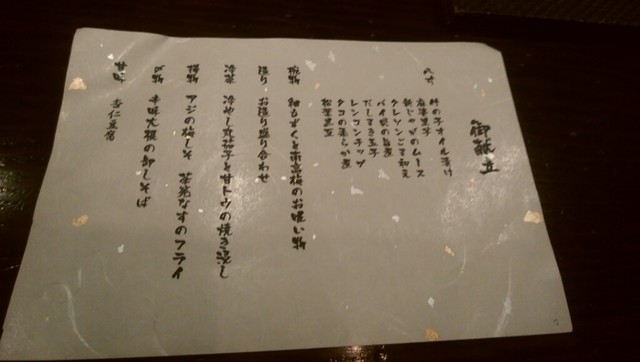 御献立
竹の子オイル漬け
新じゃがのムース
クレソンごま和え
バイ貝の旨煮
だしまき玉子
レンコンチップ
タコの柔らか煮
松葉黒豆
椀物 細もずくと南京梅のお吸い物
造り お造り盛り合わせ
冷菜 冷やし丸茄子と甘トウの焼き浸し
揚物 アジの梅しそ 茶筅なすのフライ
〆物 辛味大根の卸しそば
甘味 杏仁豆腐